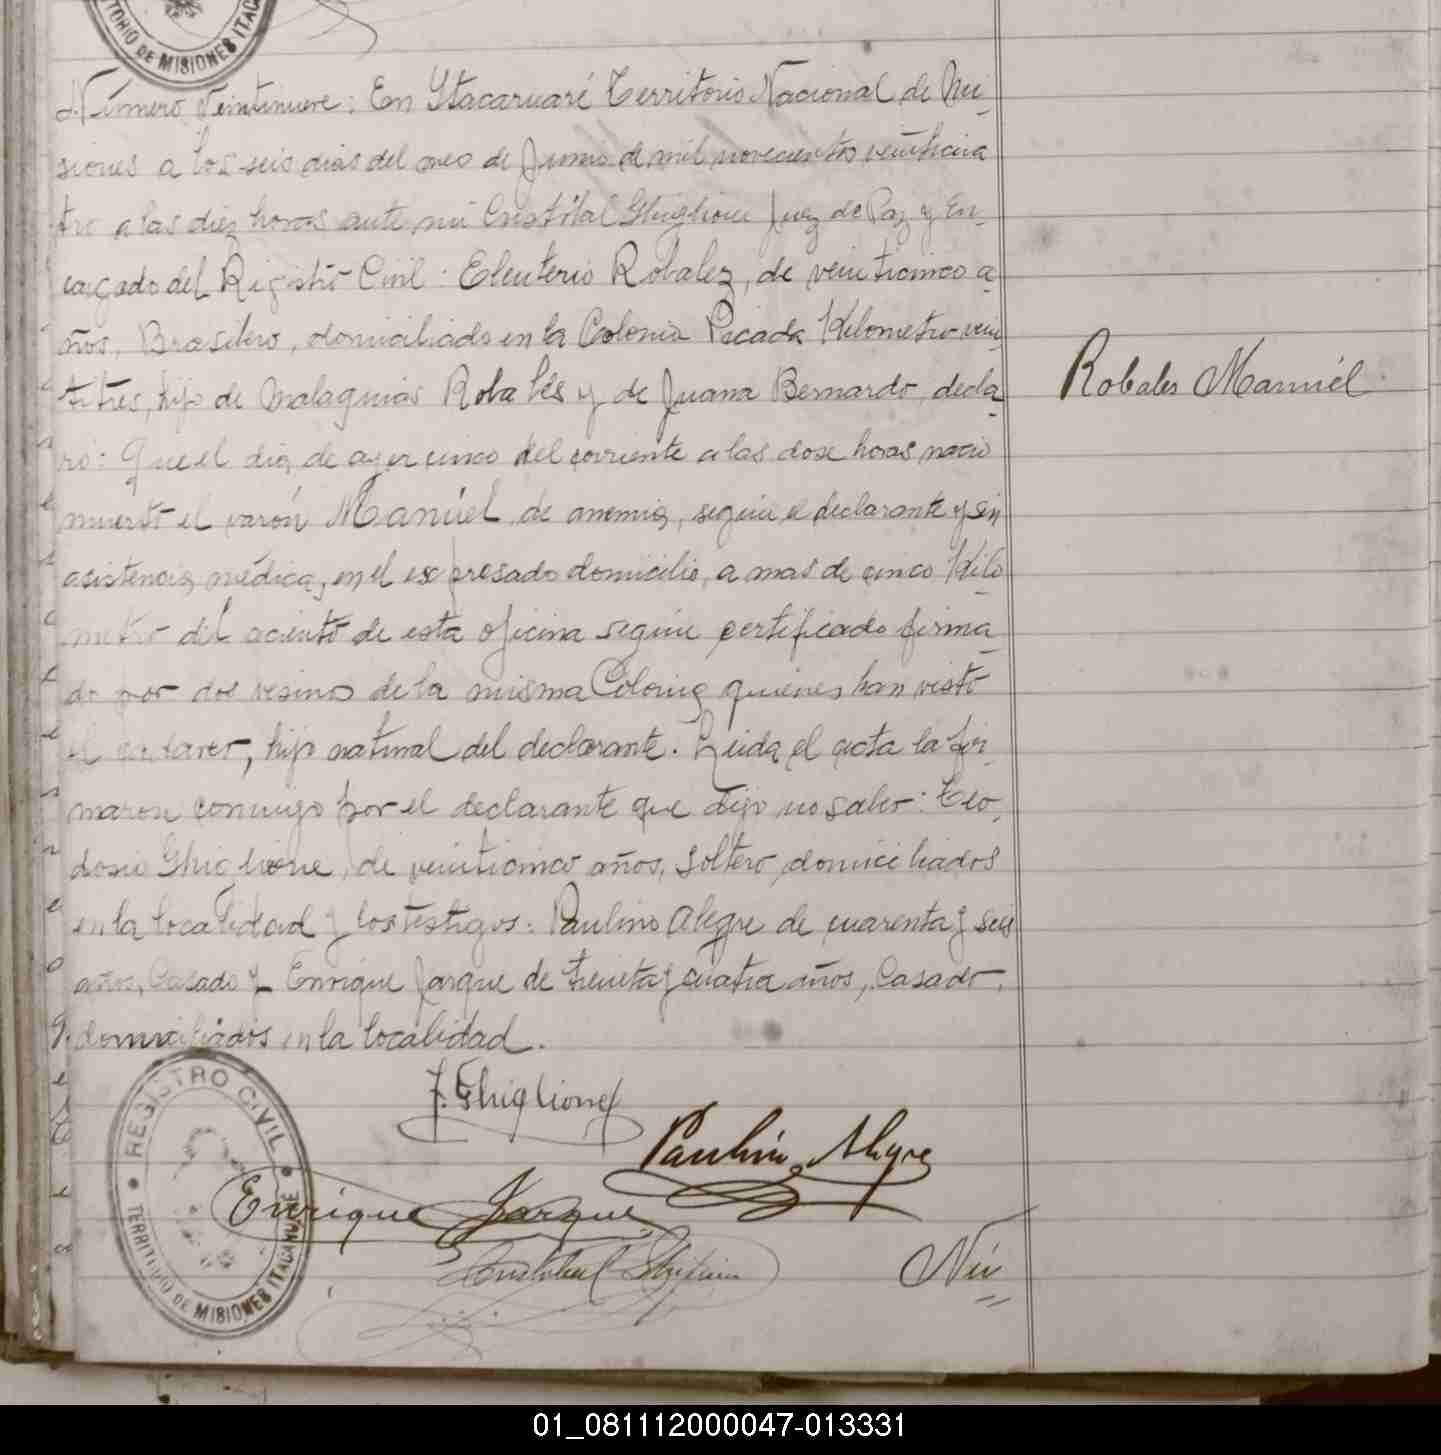 TORIO DE MISIONES ITACA
Número Veintinueve: En Ytacaruaré Territorio Nacional de Mi-
siones a los seis dias del mes de Junio de mil novecientos veinticua
tro a las diez horas ante mi Cristóbal Ghiglione Juez de Paz y En-
cargado del Registro Civil: Eleuterio Robalez, de veinticinco a-
ños, Brasilero, domiciliado en la Colonia Picada Kilometro vein
titres, hijo de Malaquias Robales y de Juana Bernardo, decla-
ró: Que el dia de ayer cinco del corriente a las dose horas nacio
muerto el varón Manúel de anemia, segun el declarante y sin
asistencia médica, en el expresado domicilio, a mas de cinco Kilo-
metro del aciento de esta oficina segun certificado firma-
do por dos vesinos de la misma Colonia quienes han visto
el cadaver, hijo natural del declarante. Leida el acta la fir-
maron conmigo por el declarante que dijo no saber: Teo-
dosio Ghiglione, de veinticinco años, soltero, domiciliados
en la localidad y los testigos: Paulino Alegre de cuarenta y seis
años, Casado y Enrique Jarque de treinta y cuatra años, Casado,
domiciliados en la localidad.
Robales Manuél
T. Ghiglione
Paulino Alegre
Enrique Jarque
Cristobal Ghiglione
Nú
REGISTRO CIVIL
TERRITORIO DE MISIONES ITACARUARÉ
01_081112000047-013331